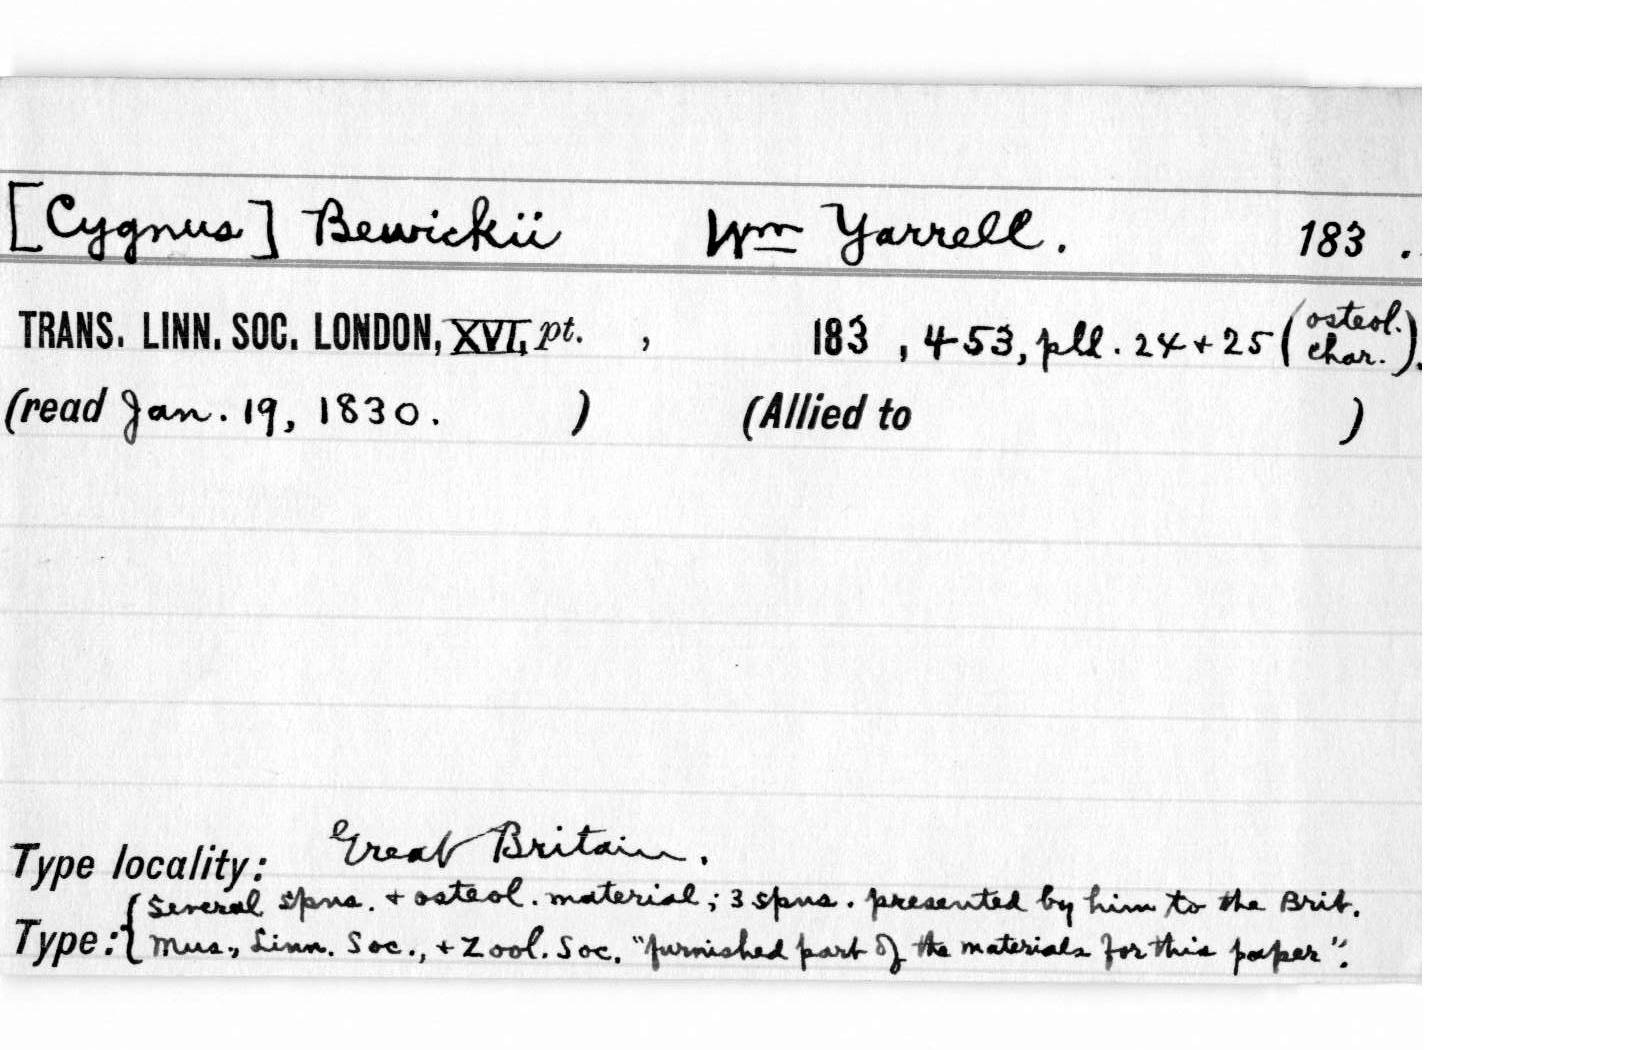 [Cygnus] Bewickii Wm Yarrell. 183 .
TRANS. LINN. SOC. LONDON, XVI, pt. , 183 , 453, pll. 24 + 25 (osteol. char.).
(read Jan. 19, 1830. ) (Allied to )
Type locality: Great Britain.
Type: { Several spns. + osteol. material; 3 spns. presented by him to the Brit.
Mus., Linn. Soc., + Zool. Soc. "furnished part of the materials for this paper".